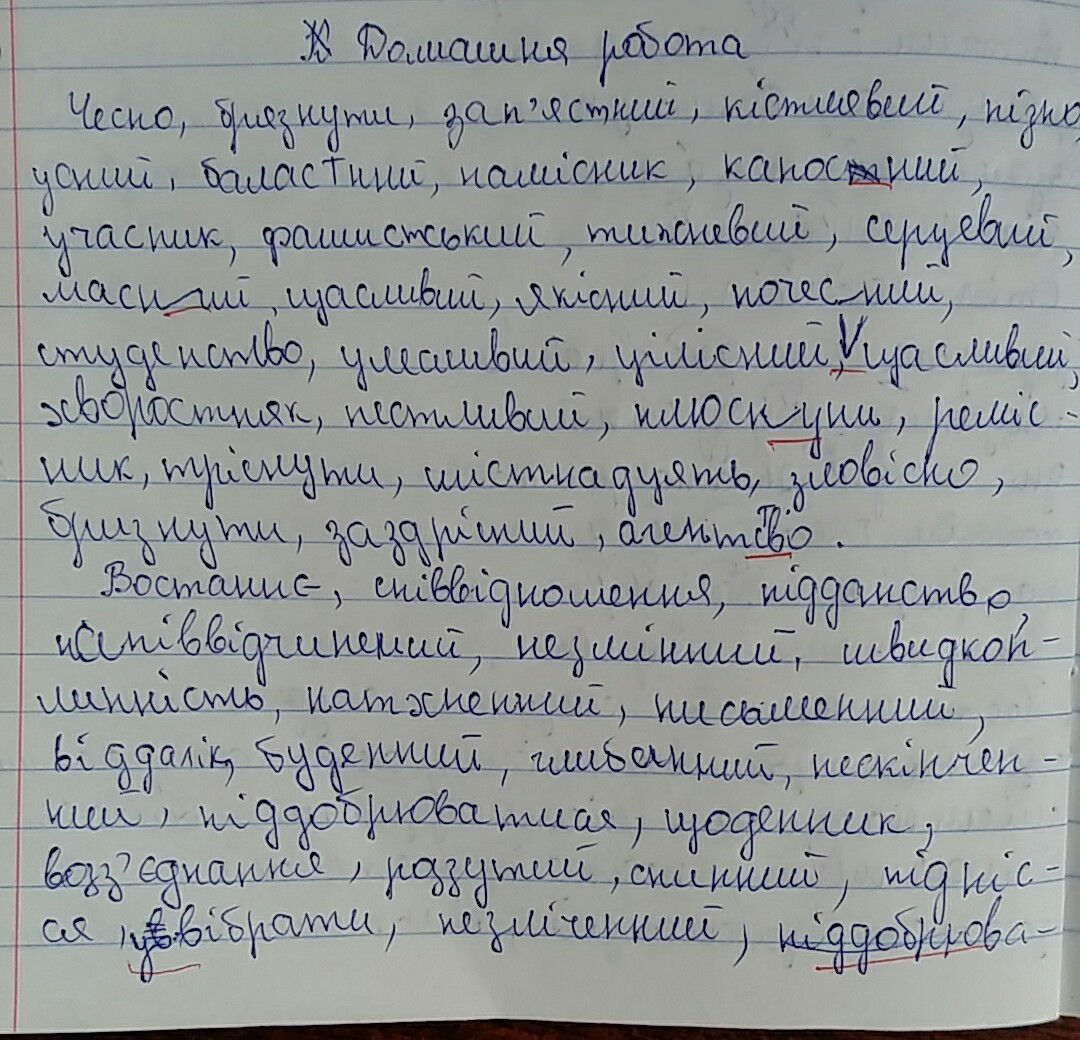 Домашня робота
Чесно, брязнути, зап'ястний, кістлявий, пізно,
усний, баластний, намісник, капосний,
учасник, фашистський, тижневий, серцевий,
масний, щасливий, якісний, почесний,
студенство, улесливий, цілісний, щасливий,
хворостняк, пестливий, плюснути, реміс-
ник, тріснути, шістнадцять, зловісно,
бризнути, заздрісний, агентство.
Востаннє, співвідношення, підданство,
співвідчинений, незмінний, швидкоп-
линність, натхненний, писаменний,
віддалік, буденний, глибинний, нескінчен-
ний, піддобрюватися, щоденник,
возз'єднання, роззутий, спинний, підніс-
ся, ввібрати, незліченний, піддобрюва-